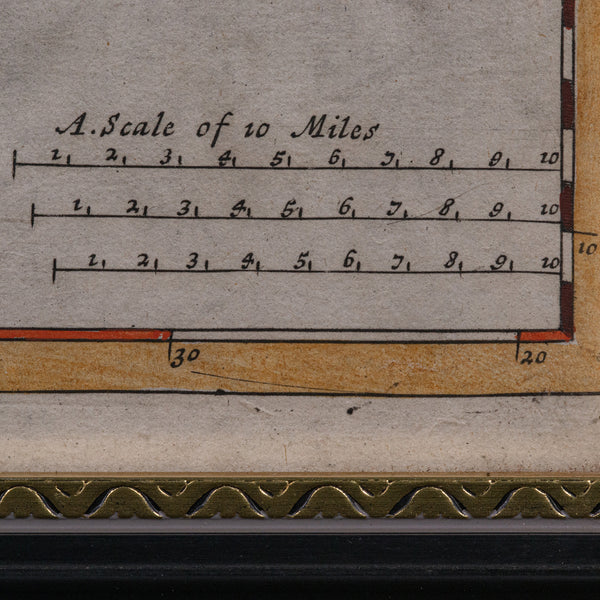 A. Scale of 10 Miles
1 2 3 4 5 6 7 8 9 10
1 2 3 4 5 6 7 8 9 10
10
1 2 3 4 5 6 7 8 9 10
30 20